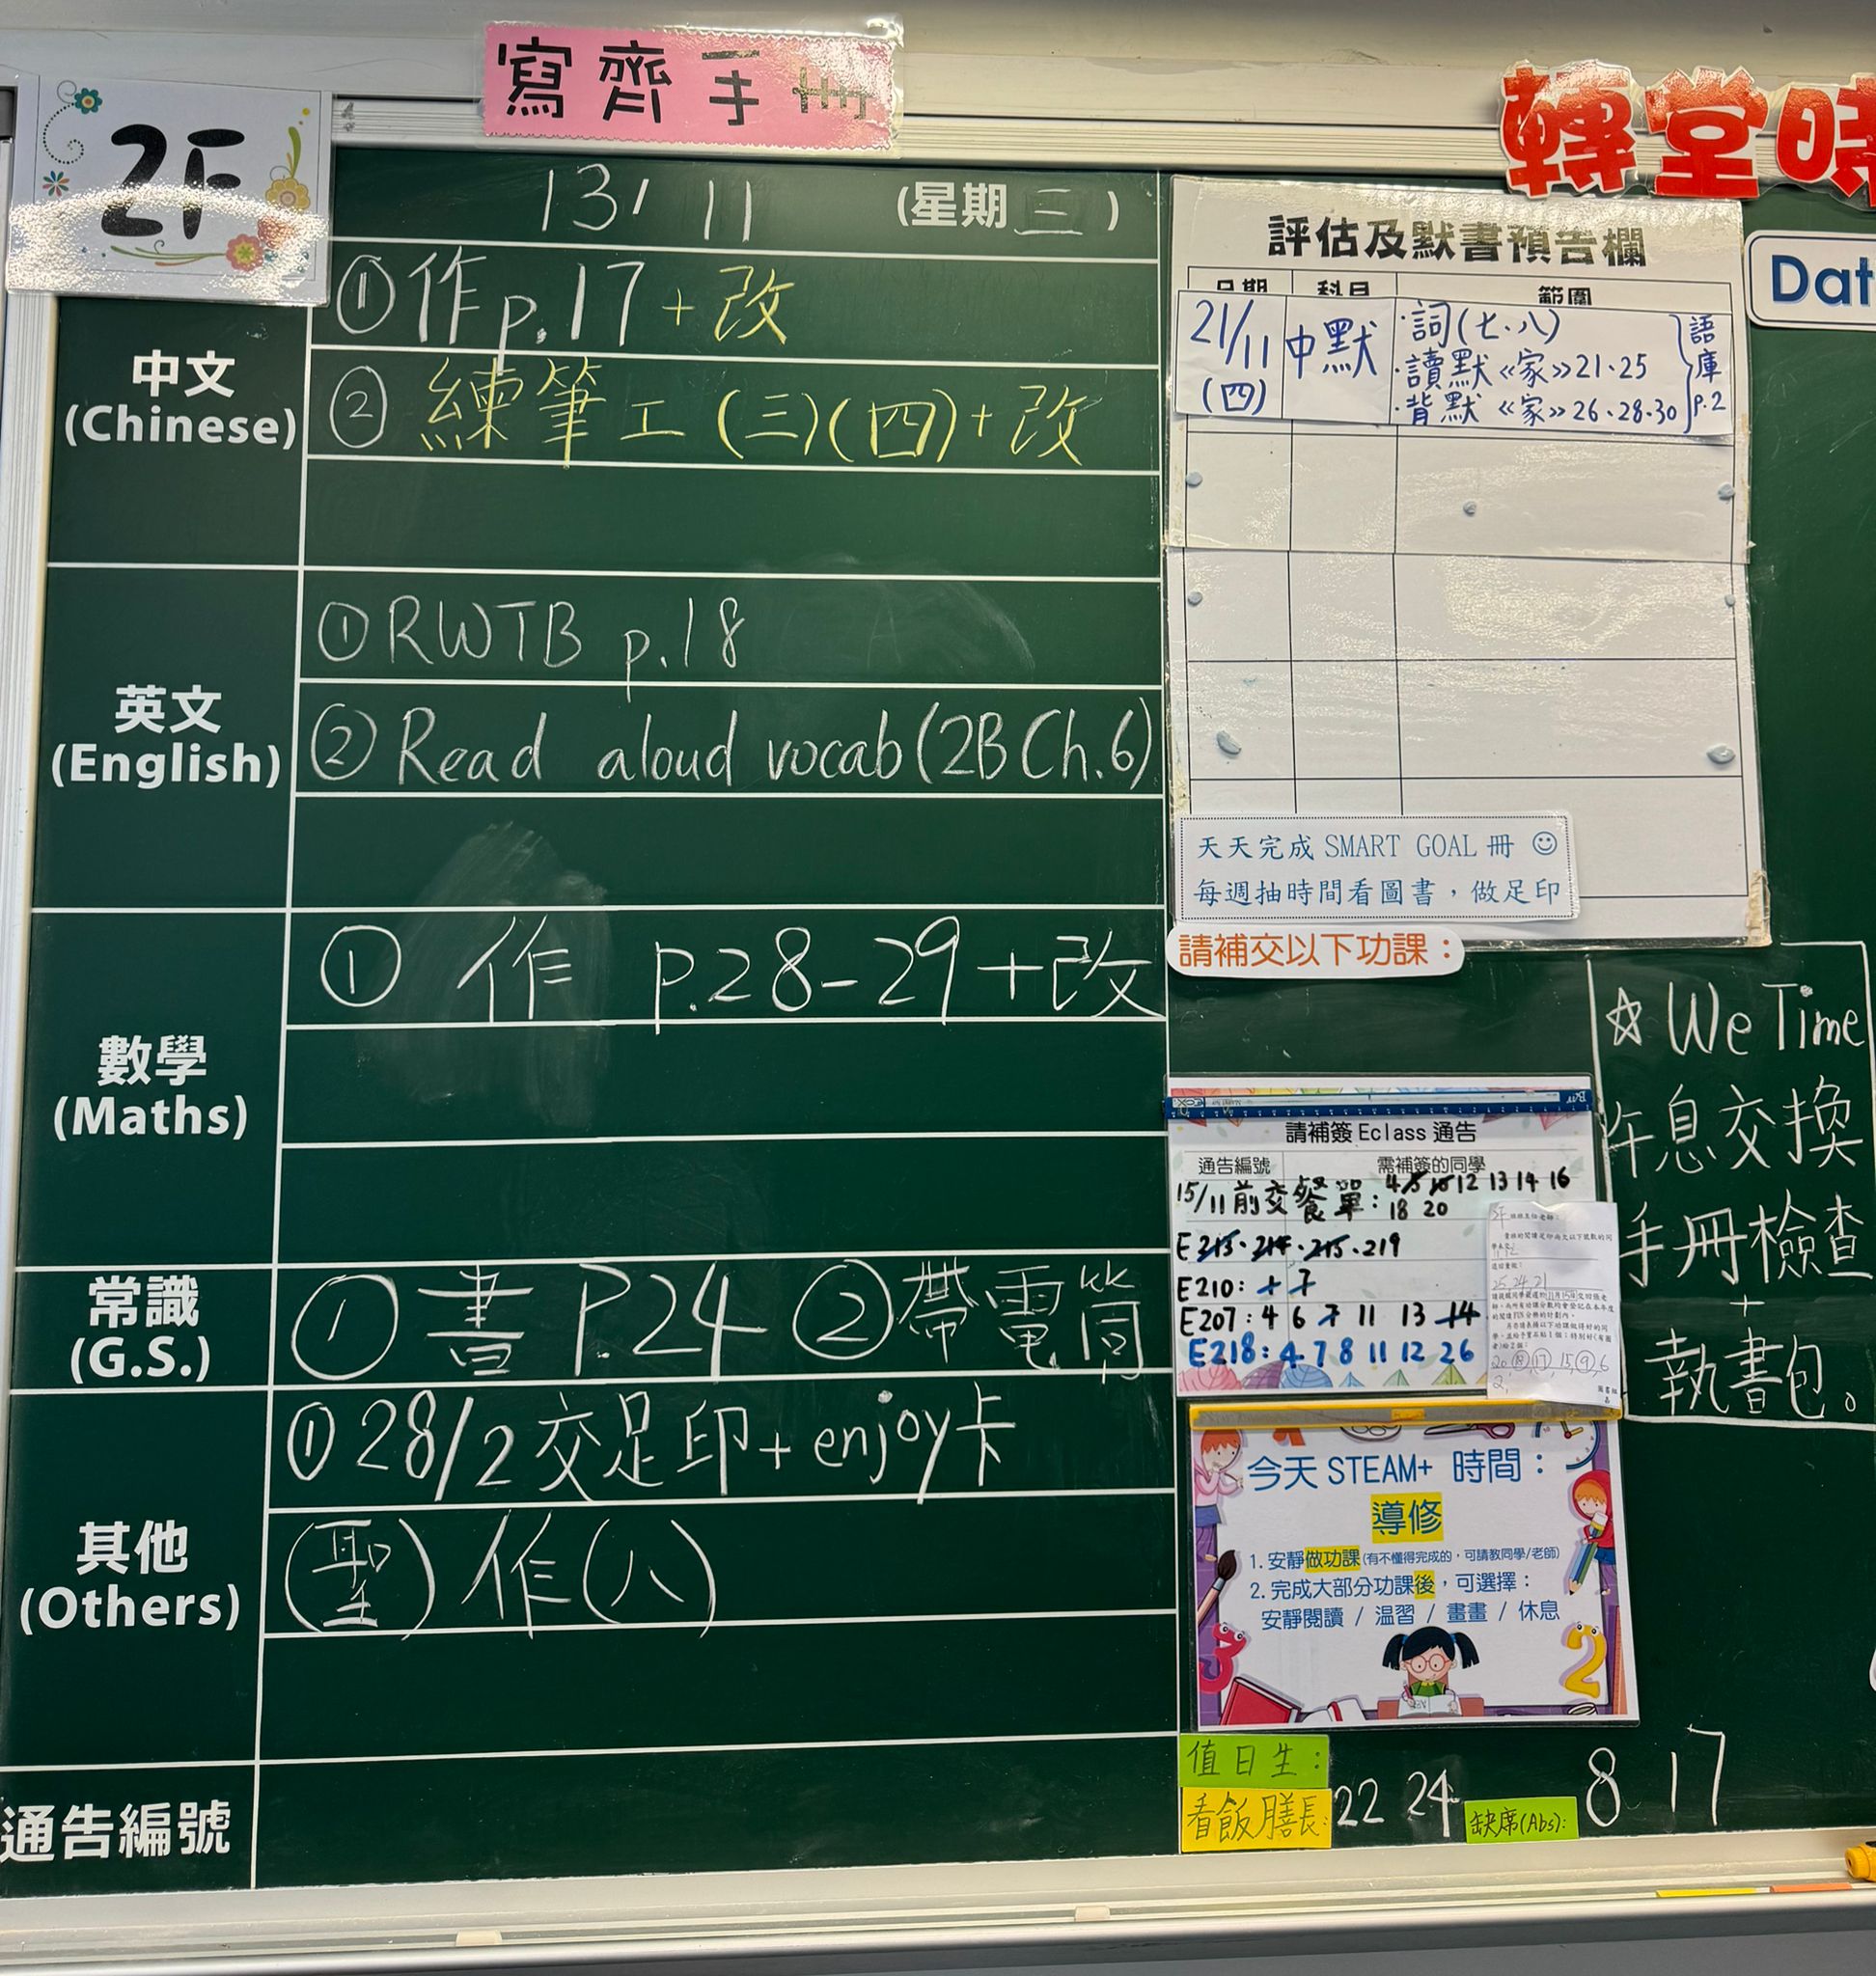 寫齊手冊
2F
轉堂時
13/ 11 (星期三)
中文
(Chinese)
①作p.17+改
②練筆工(三)(四)+改
英文
(English)
①RWTB p.18
②Read aloud vocab(2B Ch.6)
數學
(Maths)
① 作 p.28-29+改
常識
(G.S.)
①書 P.24 ②帶電筒
其他
(Others)
①28/2交足印+enjoy卡
(聖)作(八)
通告編號
評估及默書預告欄
日期 科目 範圍
21/11
(四)
中默
·詞(七、八)
·讀默《家》21、25
·背默《家》26、28、30
語庫p.2
Dat
天天完成 SMART GOAL 冊 ☺
每週抽時間看圖書，做足印
請補交以下功課：
☆ We Time
息交換
手冊檢查
+
執書包。
請補簽 Eclass 通告
通告編號 需補簽的同學
15/11前交餐單: 4 5 10 12 13 14 16
18 20
E213、214、215、219
E210: + 7
E207: 4 6 7 11 13 14
E218: 4 7 8 11 12 26
今天 STEAM+ 時間：
導修
1. 安靜做功課(有不懂得完成的，可請教同學/老師)
2. 完成大部分功課後，可選擇：
安靜閱讀 / 溫習 / 畫畫 / 休息
值日生：
看飯膳長: 22 24
缺席(Abs): 8 17